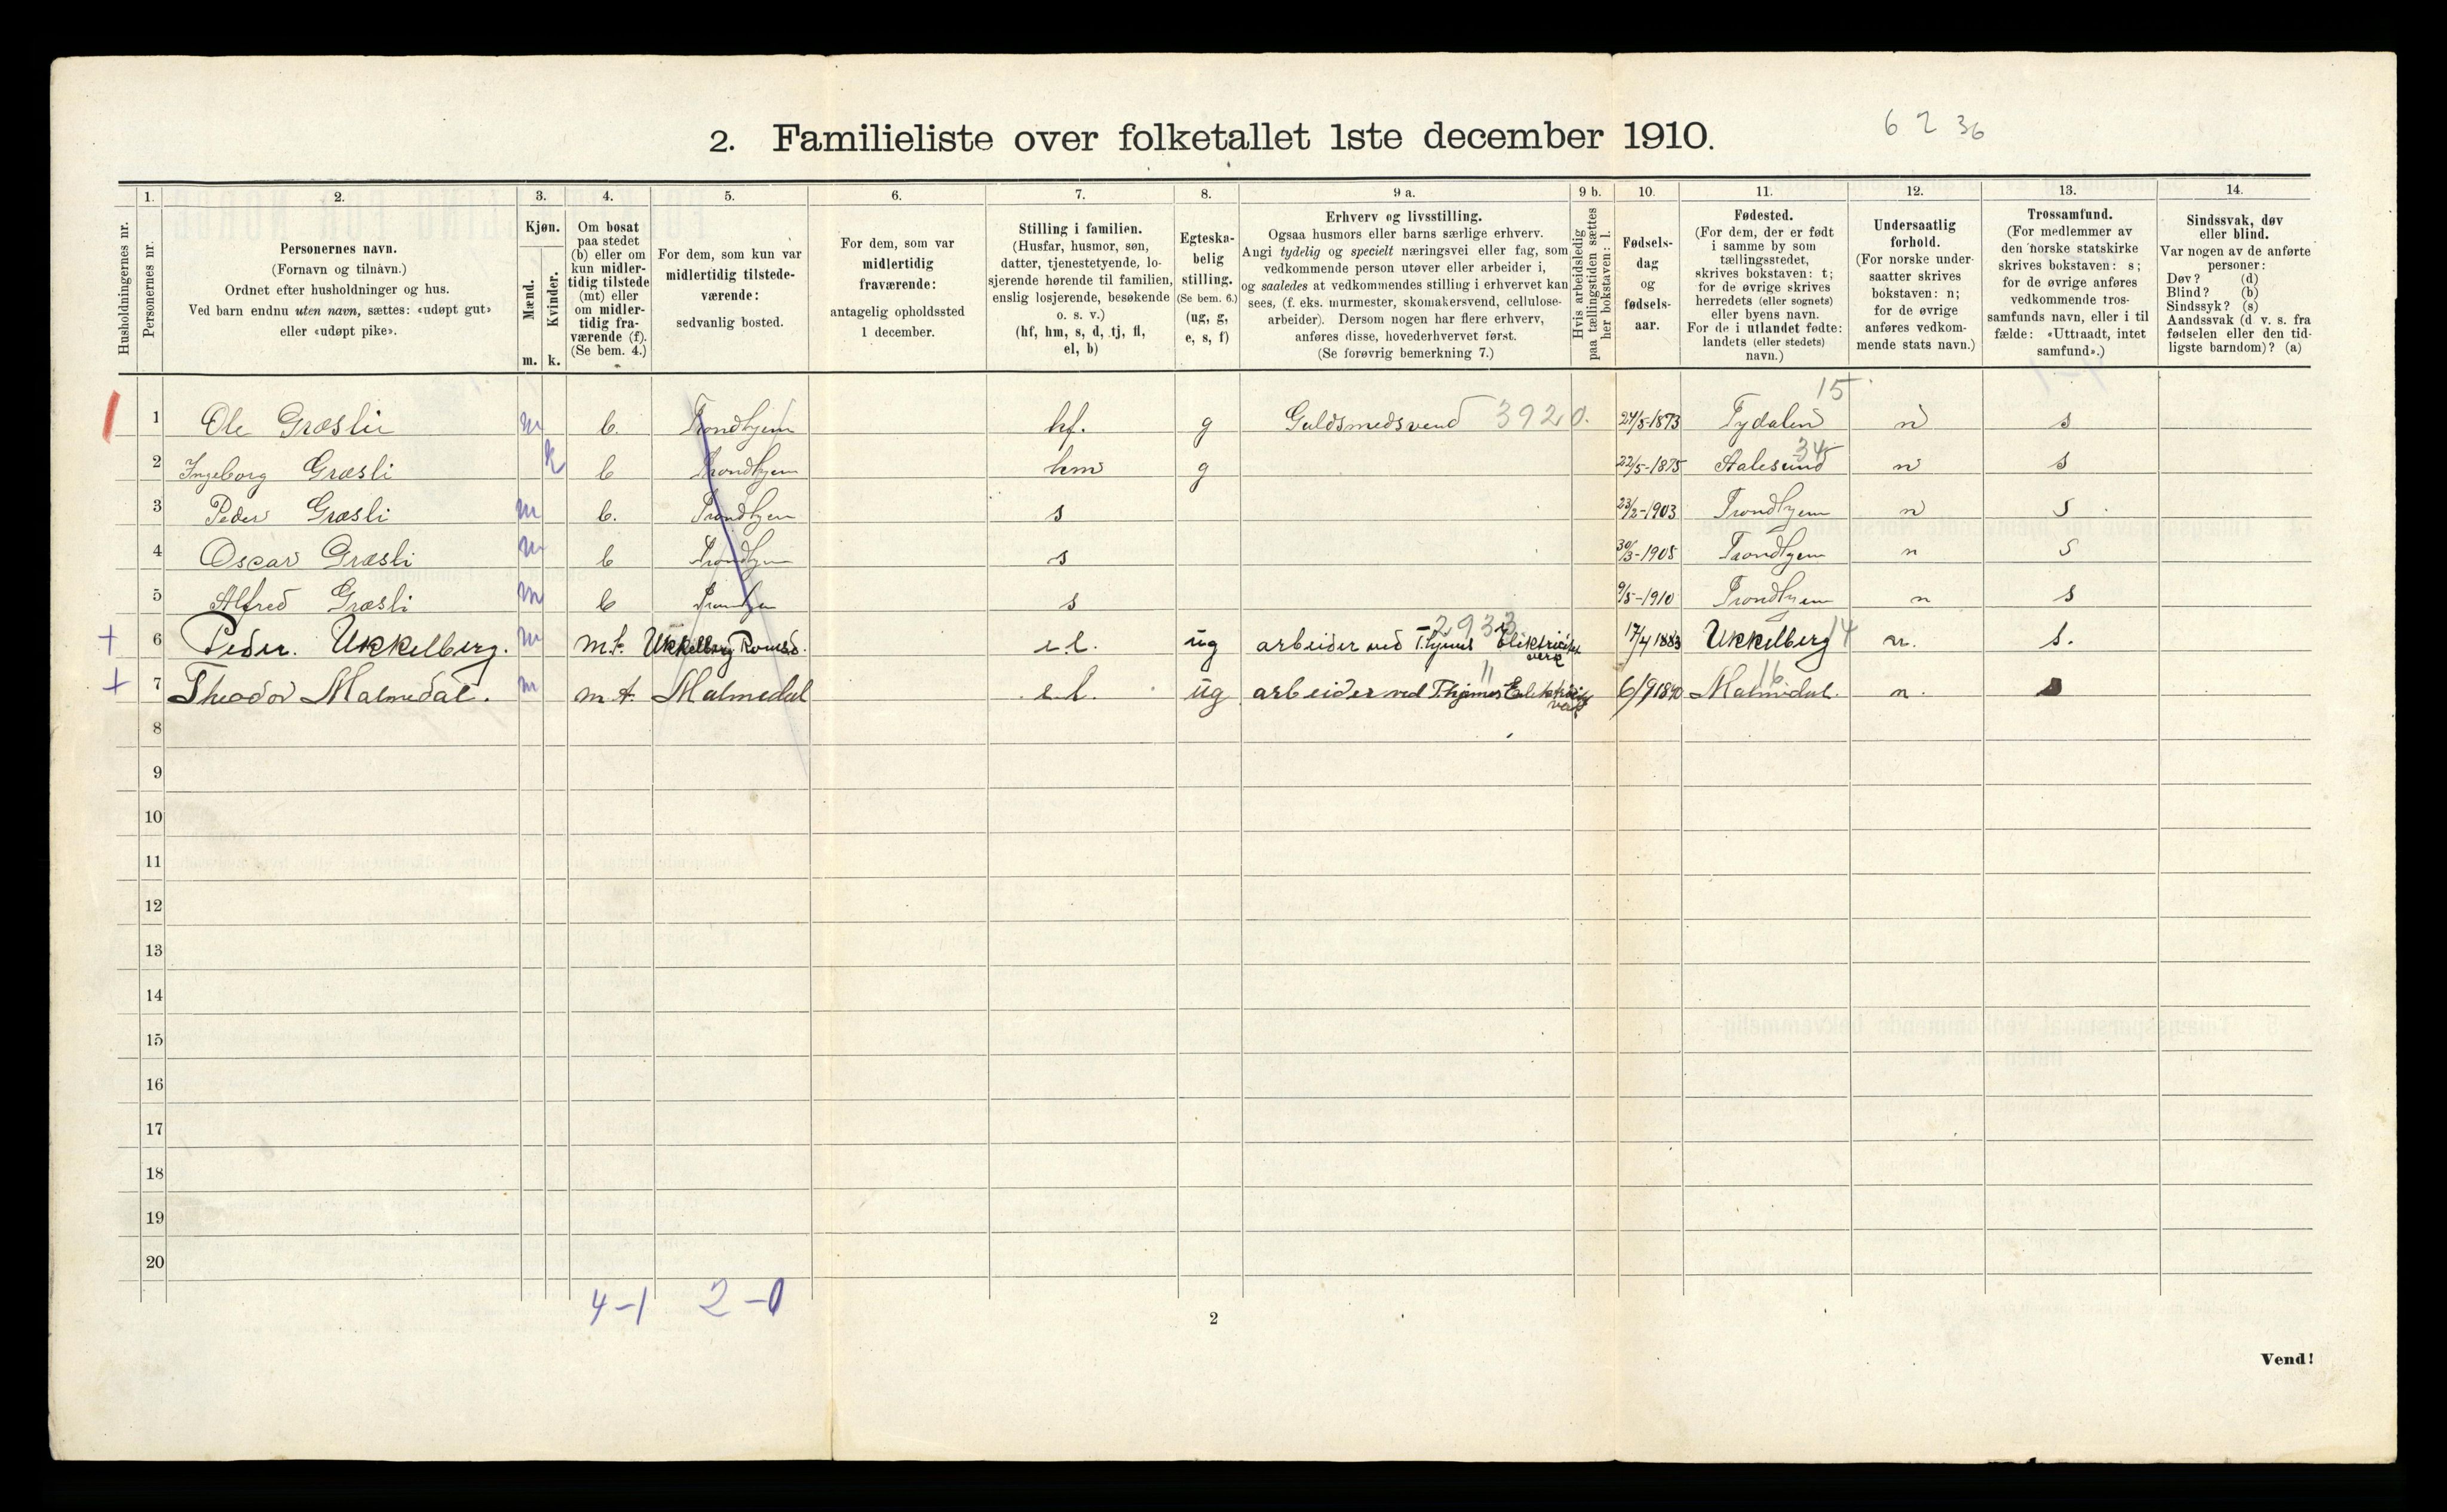 6 2 36
2. Familieliste over folketallet 1ste december 1910.
1. 2. 3. 4. 5. 6. 7. 8. 9 a. 9 b. 10. 11. 12. 13. 14.
Husholdningernes nr.
Personernes nr.
Personernes navn.
(Fornavn og tilnavn.)
Ordnet efter husholdninger og hus.
Ved barn endnu uten navn, sættes: «udøpt gut»
eller «udøpt pike».
Kjøn.
Mænd.
Kvinder.
m. k.
Om bosat
paa stedet
(b) eller om
kun midler-
tidig tilstede
(mt) eller
om midler-
tidig fra-
værende (f).
(Se bem. 4.)
For dem, som kun var
midlertidig tilstede-
værende:
sedvanlig bosted.
For dem, som var
midlertidig
fraværende:
antagelig opholdssted
1 december.
Stilling i familien.
(Husfar, husmor, søn,
datter, tjenestetyende, lo-
sjerende hørende til familien,
enslig losjerende, besøkende
o. s. v.)
(hf, hm, s, d, tj, fl,
el, b)
Egteska-
belig
stilling.
(Se bem. 6.)
(ug, g,
e, s, f)
Erhverv og livsstilling.
Ogsaa husmors eller barns særlige erhverv.
Angi tydelig og specielt næringsvei eller fag, som
vedkommende person utøver eller arbeider i,
og saaledes at vedkommendes stilling i erhvervet kan
sees, (f. eks. murmester, skomakersvend, cellulose-
arbeider). Dersom nogen har flere erhverv,
anføres disse, hovederhvervet først.
(Se forøvrig bemerkning 7.)
Hvis arbeidsledig
paa tællingstiden sættes
her bokstaven: l.
Fødsels-
dag
og
fødsels-
aar.
Fødested.
(For dem, der er født
i samme by som
tællingsstedet,
skrives bokstaven: t;
for de øvrige skrives
herredets (eller sognets)
eller byens navn.
For de i utlandet fødte:
landets (eller stedets)
navn.)
Undersaatlig
forhold.
(For norske under-
saatter skrives
bokstaven: n;
for de øvrige
anføres vedkom-
mende stats navn.)
Trossamfund.
(For medlemmer av
den norske statskirke
skrives bokstaven: s;
for de øvrige anføres
vedkommende tros-
samfunds navn, eller i til
fælde: «Uttraadt, intet
samfund».)
Sindssvak, døv
eller blind.
Var nogen av de anførte
personer:
Døv? (d)
Blind? (b)
Sindssyk? (s)
Aandssvak (d. v. s. fra
fødselen eller den tid-
ligste barndom)? (a)
15
1 Ole Græsli m b. Trondhjem hf. g Guldsmedsvend 3920. 24/5-1873 Tydalen n s
34
2 Ingeborg Græsli k b Trondhjem hm g 22/5-1875 Aalesund n s
3 Peder Græsli m b. Trondhjem s 23/2-1903 Trondhjem n s
4 Oscar Græsli m b Trondhjem s 30/3-1908 Trondhjem n s
5 Alfred Græsli m b s 9/5-1910 Trondhjem n s
2933
+ 6 Peder. Ukkelberg. m m.t. Ukkelberg Romsd. e l. ug arbeider ved Thjems Elektricitets verk 17/4 1883 Ukkelberg 14 n. s.
11 16
+ 7 Theodor Malmedal. m m t. Malmedal e l. ug arbeider ved Thjems Elektricitets verk 6/9 1890 Malmedal. n. s
8
9
10
11
12
13
14
15
16
17
18
19
20
4-1 2-0
2
Vend!